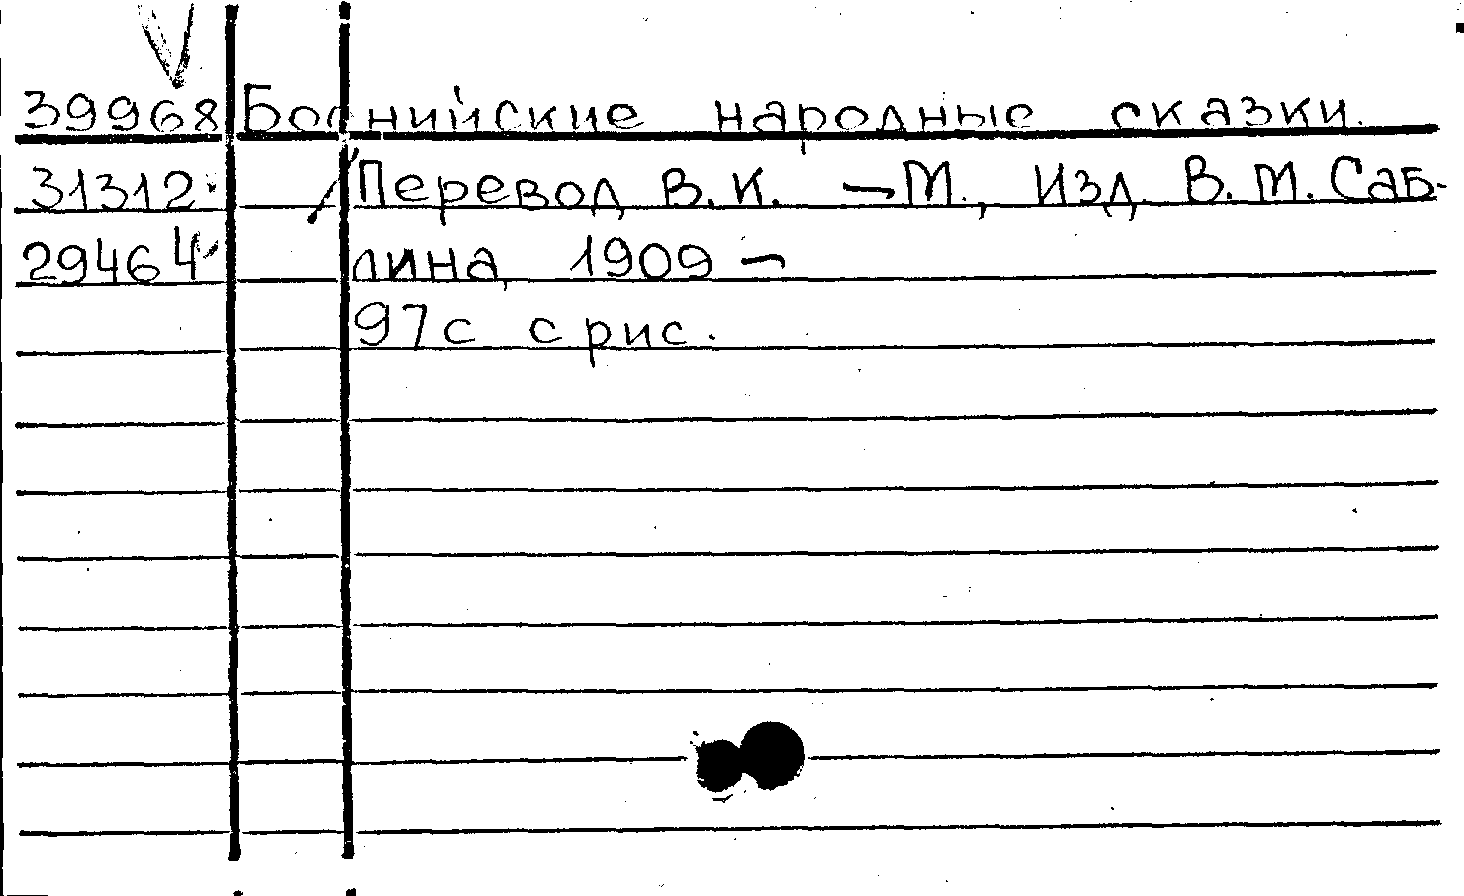 39968 Боснийские народные сказки.
31312 Перевод В. К. — М., Изд. В. М. Саб-
29464 лина, 1909 —
97с с рис.